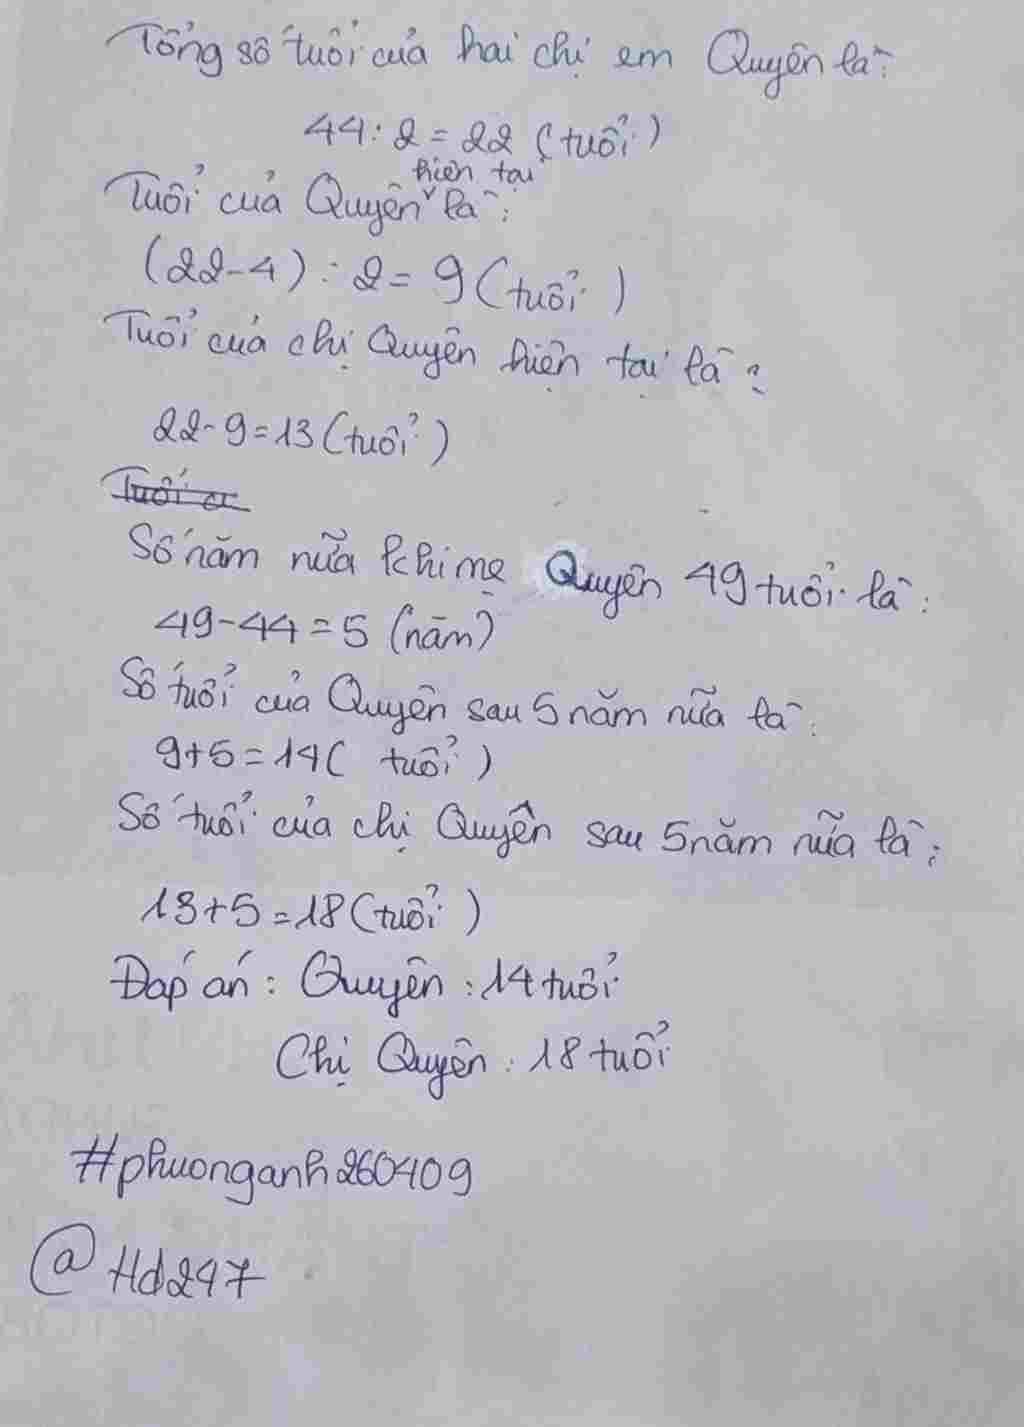 Tổng số tuổi của hai chị em Quyên là:
44:2=22 (tuổi)
hiện tại
Tuổi của Quyên ˇ là:
(22-4):2=9(tuổi)
Tuổi của chị Quyên hiện tại là:
22-9=13(tuổi)
Tuổi c
Số năm nữa khi mẹ Quyên 49 tuổi là:
49-44=5 (năm)
Số tuổi của Quyên sau 5 năm nữa là:
9+5=14( tuổi)
Số tuổi của chị Quyên sau 5 năm nữa là:
13+5=18(tuổi)
Đáp án: Quyên: 14 tuổi
Chị Quyên: 18 tuổi
#phuonganh260409
@Hd247